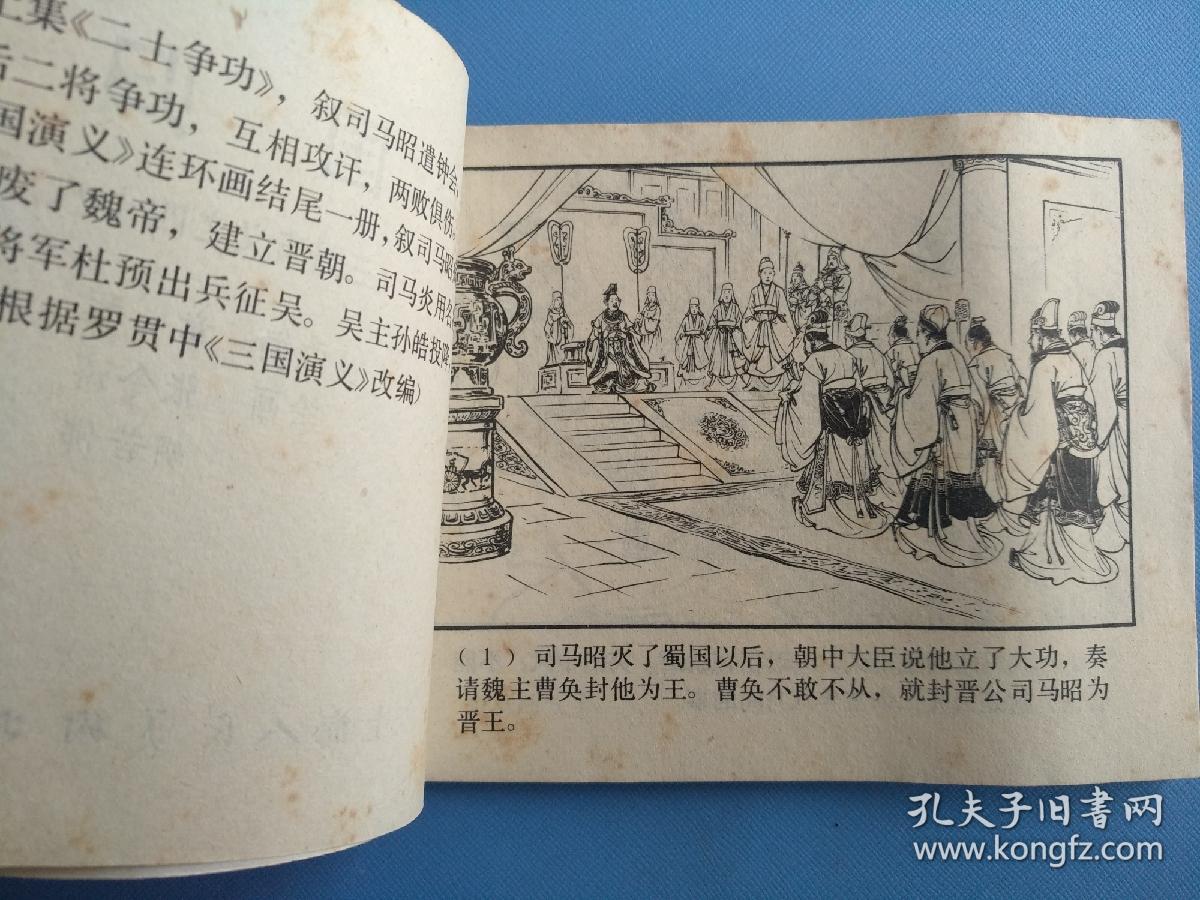 上集《二士争功》，叙司马昭遣钟会、
后二将争功，互相攻讦，两败俱伤。
国演义》连环画结尾一册，叙司马昭
废了魏帝，建立晋朝。司马炎用
将军杜预出兵征吴。吴主孙皓投降
根据罗贯中《三国演义》改编）
（1）司马昭灭了蜀国以后，朝中大臣说他立了大功，奏
请魏主曹奂封他为王。曹奂不敢不从，就封晋公司马昭为
晋王。
孔夫子旧书网
www.kongfz.com